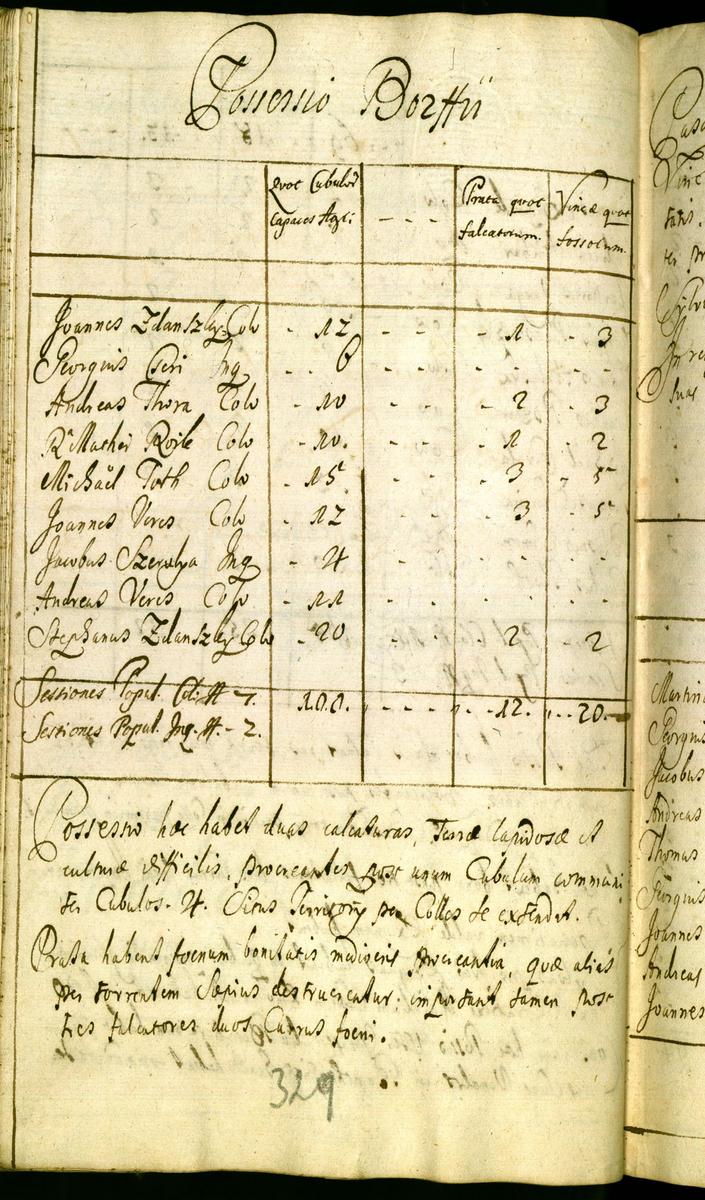 Possessio Borffű
Quot Cubulor̃ Prata quot Vineæ quot
capaces Agri: - - - falcatorum. fossorum.
Joannes Zdanszky Colo - 12 - - - 1 - 3
Georgius Cseri Inq - - 6 - - - - - -
Andreas Thora Colo - 10 - - - 2 - 3
Mathei Colo - 10. - - - 1 - 2
Michaël Toth Colo - 15. - - - 3 - 5
Joannes Veres Colo - 12 - - - 3 - 5
Jacobus Inq - 4 - - - - - -
Andreas Veres Colo - 11 - - - - - -
Stephanus Zdanszky Colo - 20 - - - 2 - 2
Sessiones Popul. Col: # - 7. 100. - - - - - 12. - - 20.
Sessiones Popul. Inq. #. - 2.
Possessio hæc habet duas calcaturas, Terræ lapidosæ et
culturæ difficilis, procreantes post unum Cubulum communi
ter Cubulos. 4. Situs Territorÿ per Colles se extendit.
Prata habent foenum bonitatis mediocris procreantia, quæ alias
per torrentem sæpius destruerentur; important tamen post
tres falcatores duos Currus foeni.
329
Martin
Georgius
Jacobus
Andreas
Thomas
Georgius
Joannes
Andreas
Joannes